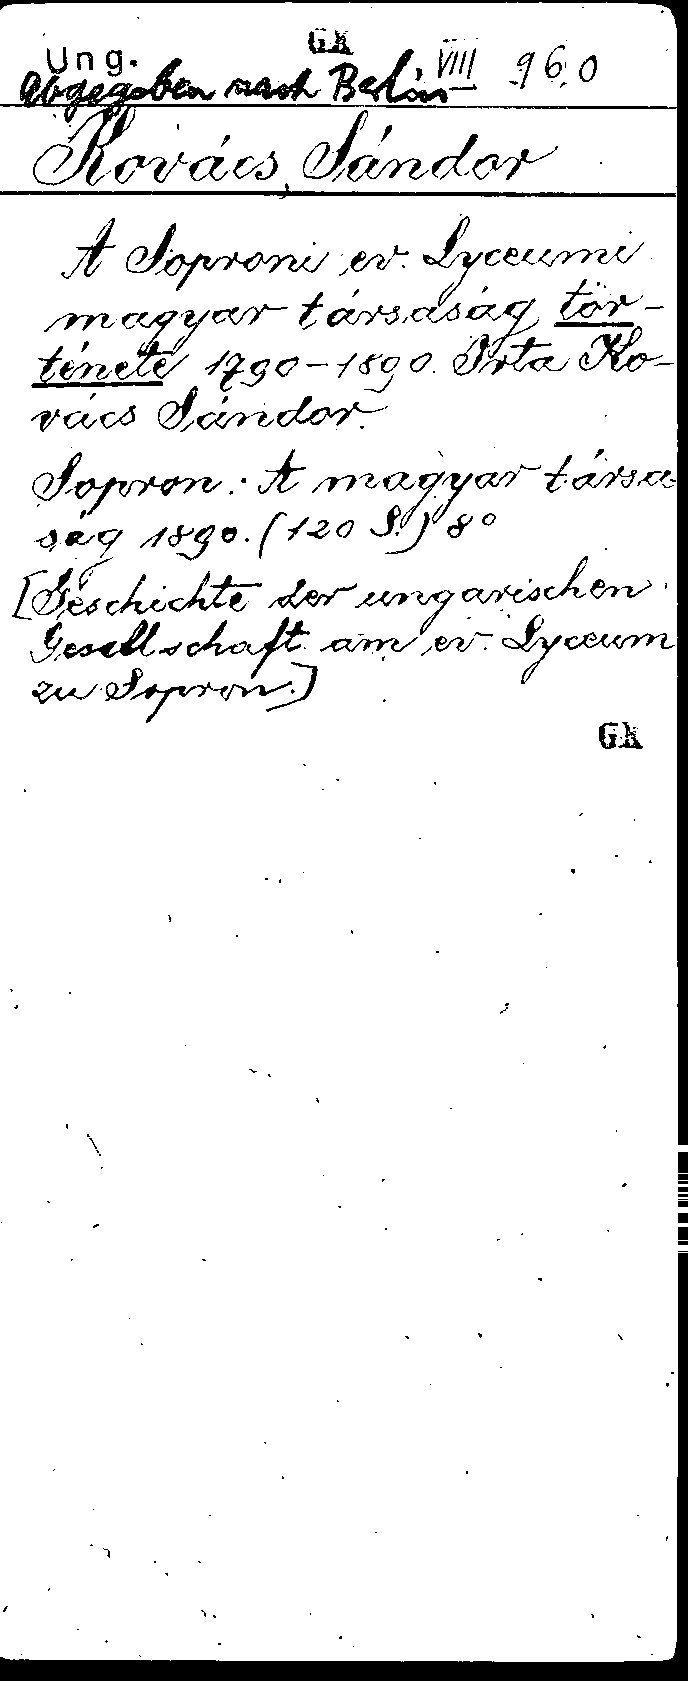 GK
Ung. VIII 960
abgegeben nach Berlin
Kovács, Sándor
A Soproni ev. Lyceumi
magyar társaság tör-
ténete 1790-1890. Irta Ko-
vács Sándor.
Sopron: A magyar társa-
ság 1890. (120 S.) 8°
[Geschichte der ungarischen
Gesellschaft am ev. Lyceum
zu Sopron.]
GK